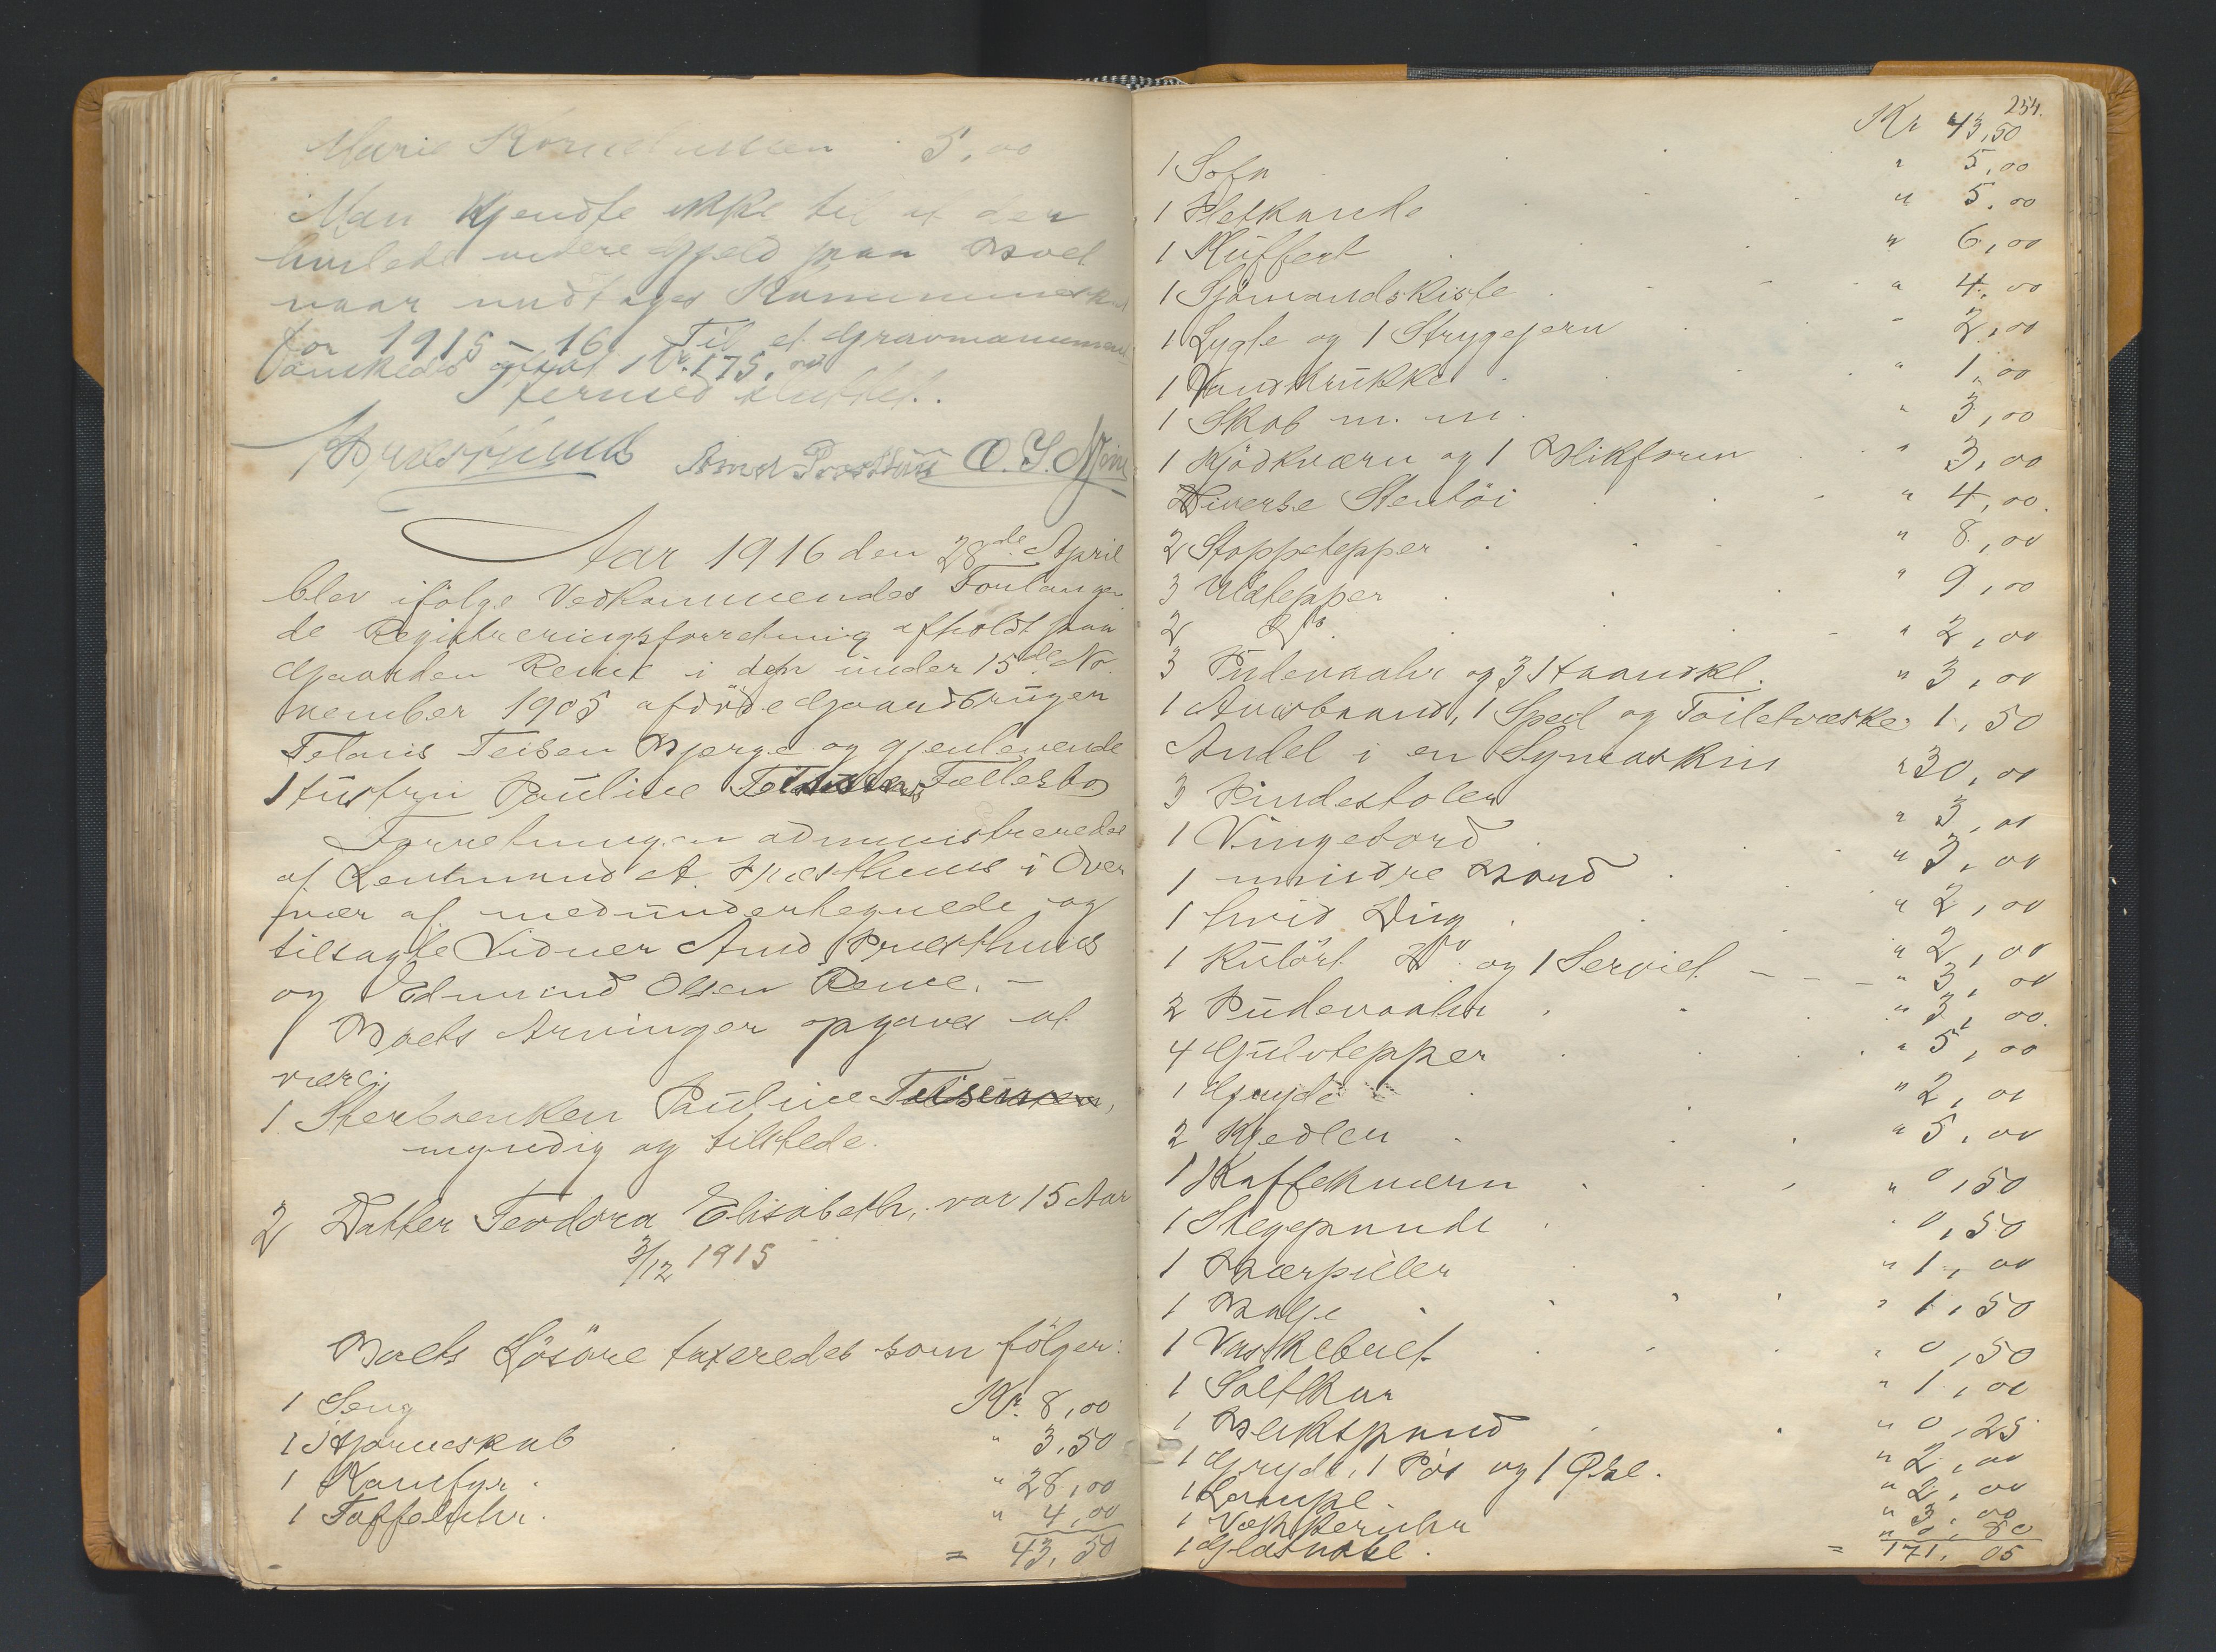 Marie 5,00
Man kjendte ikke til at der
hvilede videre Gjeld paa Boet
naar undtages Kommuneskat
for 1915-16 Til et Gravmonument
önskedes afsat Kr. 175,00
Hermed sluttet.
A Præsthuus Amd Præsthuus O. J.
Aar 1916 den 28de April
blev ifölge Vedkommendes Forlangen
de Registreringsforretning afholdt paa
Gaarden Reme i det under 15de No
vember 1905 afdöde Gaardbruger
Telonis Teisen Bjerge og gjenlevende
Hustru Pauline Fællesbo
Forretningen administreredes
af Lensmand A. Præsthuus i Over
vær af medundertegnede og
tilsagte Vidner Amd Præsthuus
og Edmund Olsen Reme. -
Boets Arvinger opgaves at
være:
1 Sterboenken Pauline Teisen,
myndig og tilstede.
2 Datter Teodora Elisabeth, var 15 Aar
3/12 1915
Boets Lösöre taxeredes som fölger:
1 Seng Kr. 8,00
1 Hjørneskab " 3,50
1 Komfyr. " 28,00
1 Taffeluhr. " 4,00
= 43,50
254.
Kr 43,50
1 Sofa " 5,00
1 Bletkande " 5,00
1 Kuffert " 6,00
1 Sjömandskiste " 4,00
1 Lygte og 1 Strygejern " 2,00
1 Vandkrukke " 1,00
1 Skab m. m. " 3,00
1 Kjödkværn og 1 Blikform " 3,00
Diverse Stentöi " 4,00.
2 Stoppetepper " 8,00
3 Uldtepper " 9,00
2 Do " 2,00
3 Pudevaahr og 3 Haandkl. " 3,00
1 Armbaand, 1 Speil og Toiletveske 1,50
Andel i en Symaskin " 30,00
3 Pindestoler " 3,00
1 Vingebord " 3,00
1 mindre Bord " 2,00
1 hvid Dug " 2,00
1 Kulört Do og 1 Serviet - - - " 3,00
2 Pudevaahr " 3,00.
4 Gulvtepper " 5,00
1 Gryde " 2,00
2 Kjedler " 5,00
1 Kaffekværn " 0,50
1 Stegepande " 0,50
1 Bærpiller " 1,00
1 Balje " 1,50
1 Vaskebret " 0,50
1 Saltkar " 1,00
1 Bekspand " 0,25
1 Gryde, 1 Pös og 1 Øse. " 2,00
1 Lampe. " 2,00
1 Vækkeruhr " 3,00
1 Glasvase. " 0,80
= 171,05